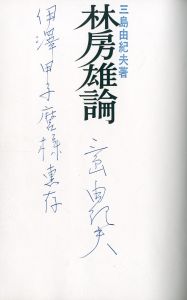 三島由紀夫著
林房雄論
伊澤甲子麿様恵存
三島由紀夫